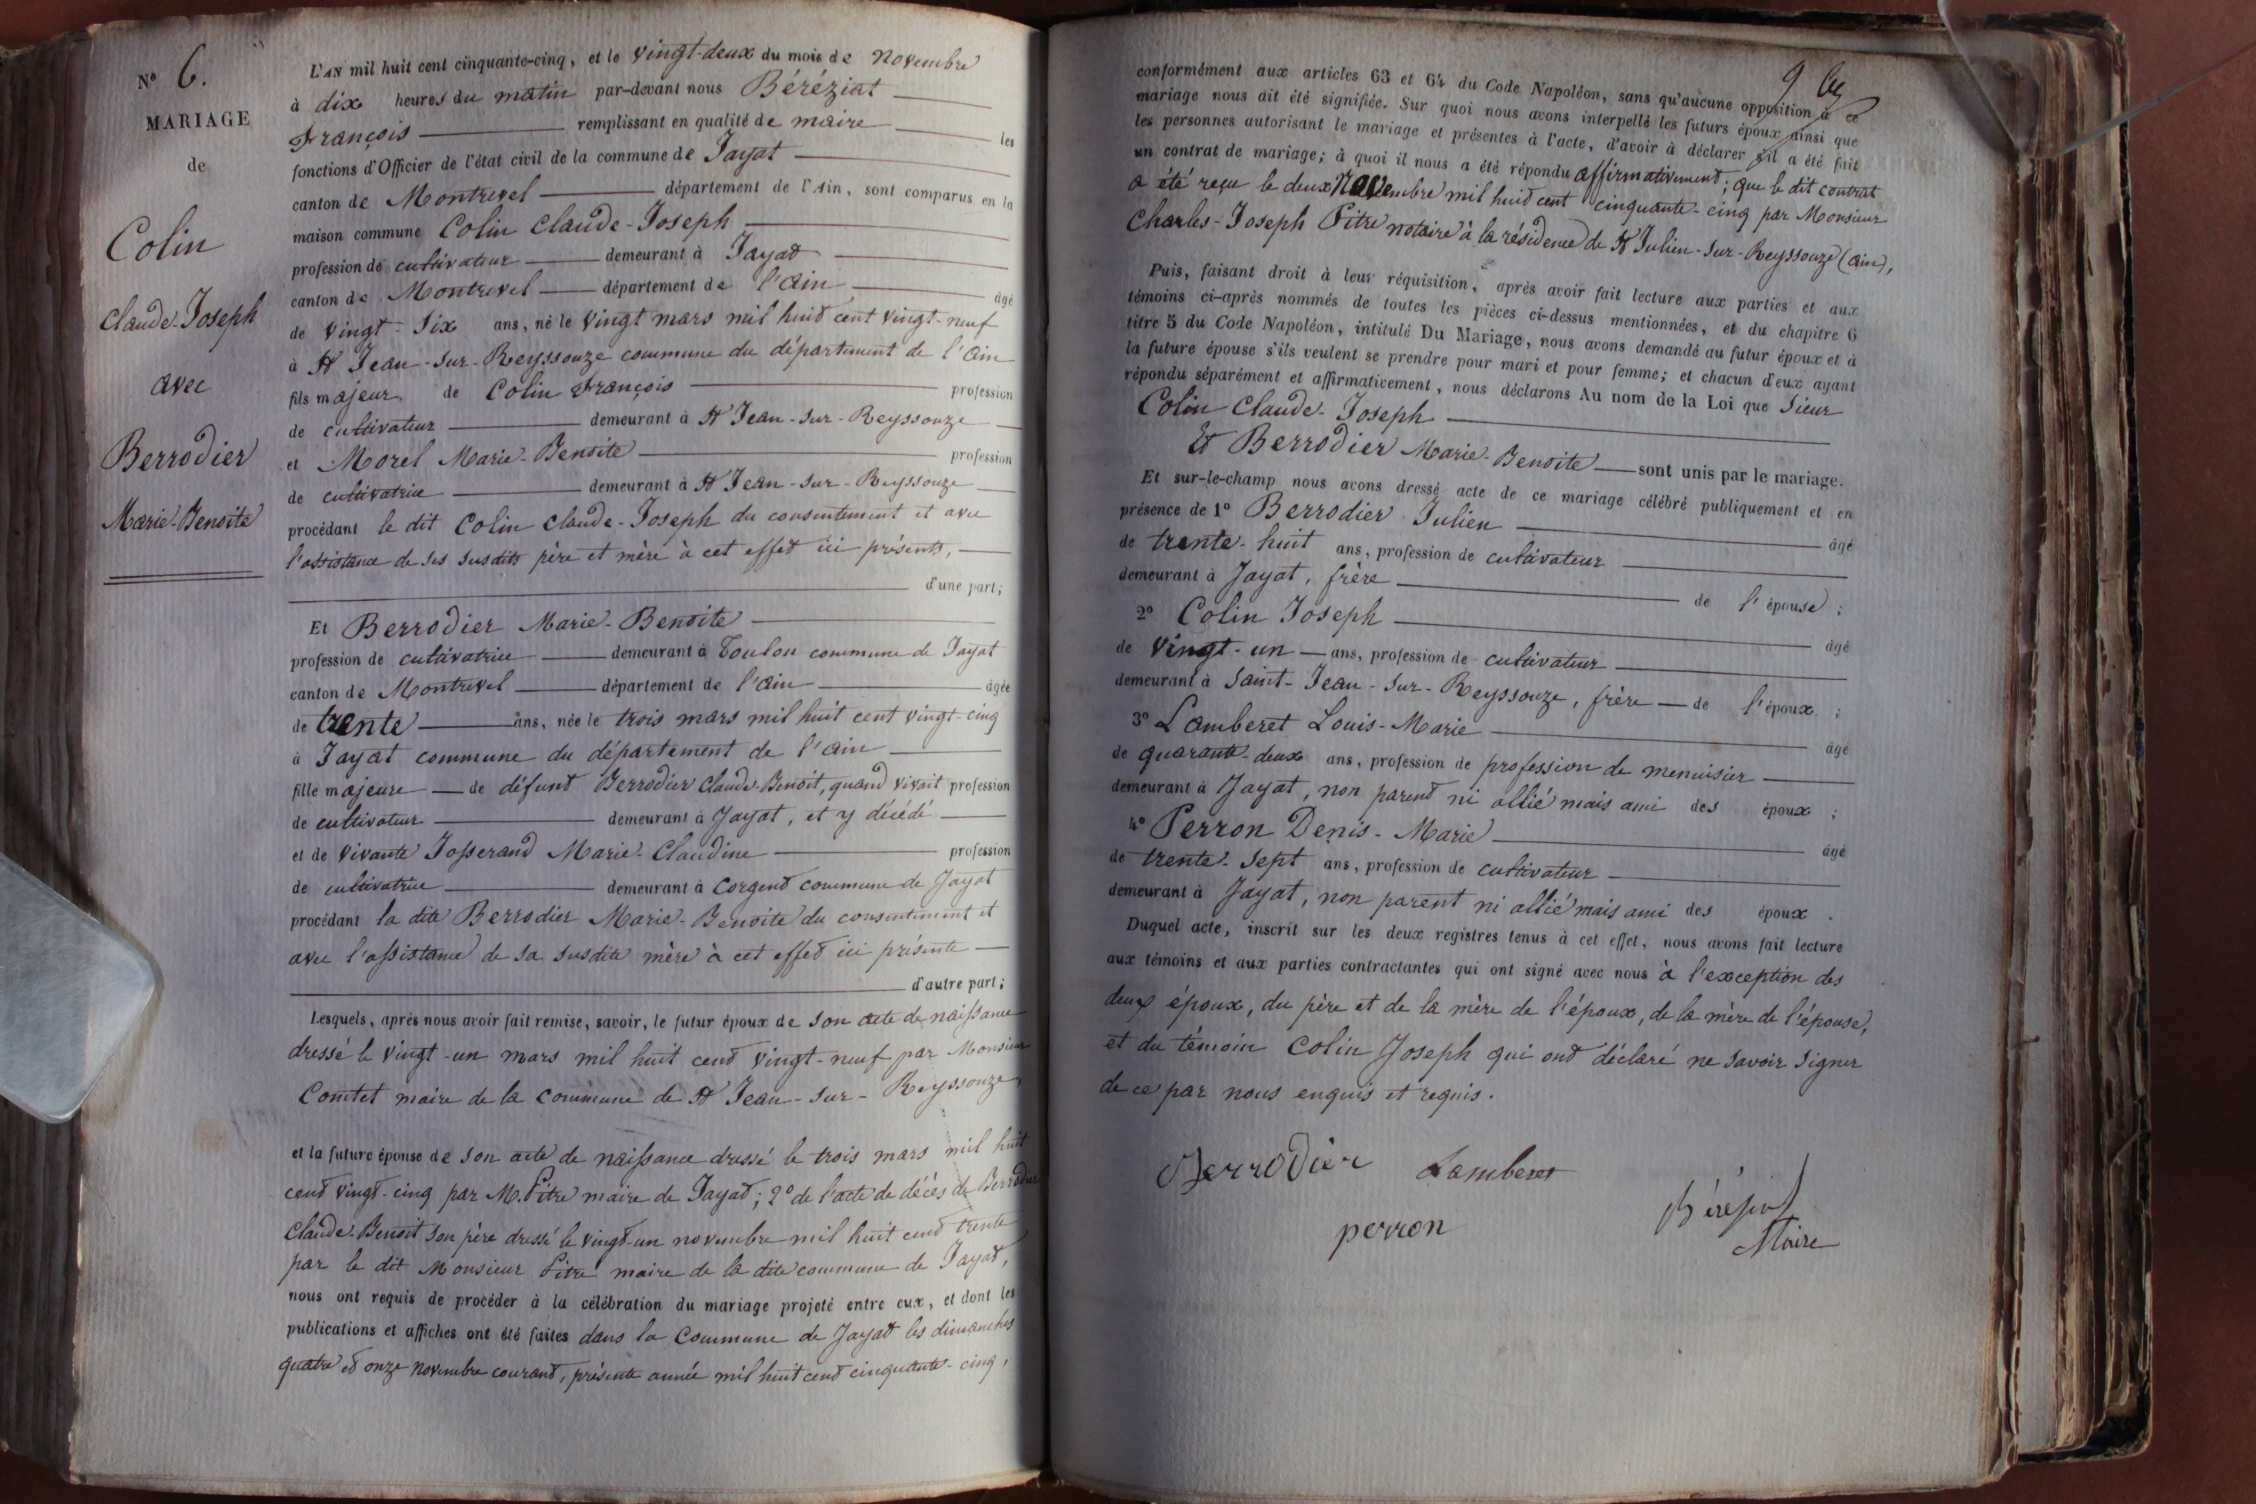 N° 6.
MARIAGE
de
Colin
Claude-Joseph
avec
Berrodier
Marie-Benoite
L'AN mil huit cent cinquante-cinq, et le vingt-deux du mois de novembre
à dix heures du matin par-devant nous Béréziat
François remplissant en qualité de maire les
fonctions d'Officier de l'état civil de la commune de Jayat
canton de Montrevel département de l'Ain, sont comparus en la
maison commune Colin Claude-Joseph
profession de cultivateur demeurant à Jayat
canton de Montrevel département de l'ain âgé
de vingt-six ans, né le vingt mars mil huit cent vingt-neuf
à St Jean-sur-Reyssouze commune du département de l'ain
fils majeur de Colin François profession
de cultivateur demeurant à St Jean-sur-Reyssouze
et Morel Marie-Benoite profession
de cultivatrice demeurant à St Jean-sur-Reyssouze
procédant le dit Colin Claude-Joseph du consentement et avec
l'assistance de ses susdits père et mère à cet effet ici présents,
d'une part;
Et Berrodier Marie-Benoite
profession de cultivatrice demeurant à Toulon commune de Jayat
canton de Montrevel département de l'ain âgée
de trente ans, née le trois mars mil huit cent vingt-cinq
à Jayat commune du département de l'ain
fille majeure de défunt Berrodier Claude-Benoit, quand vivait profession
de cultivateur demeurant à Jayat, et y décédé
et de vivante Josserand Marie-Claudine profession
de cultivatrice demeurant à Corgent commune de Jayat
procédant la dite Berrodier Marie-Benoite du consentement et
avec l'assistance de sa susdite mère à cet effet ici présente
d'autre part;
Lesquels, après nous avoir fait remise, savoir, le futur époux de son acte de naissance
dressé le vingt-un mars mil huit cent vingt-neuf par Monsieur
Comtet maire de la commune de St Jean-sur-Reyssouze,
et la future épouse de son acte de naissance dressé le trois mars mil huit
cent vingt-cinq par M. Pitre maire de Jayat; 2° de l'acte de décès de Berrodier
Claude-Benoit son père dressé le vingt-un novembre mil huit cent trente
par le dit Monsieur Pitre maire de la dite commune de Jayat,
nous ont requis de procéder à la célébration du mariage projeté entre eux, et dont les
publications et affiches ont été faites dans la Commune de Jayat les dimanches
quatre et onze novembre courant, présente année mil huit cent cinquante-cinq,
conformément aux articles 63 et 64 du Code Napoléon, sans qu'aucune opposition à ce
mariage nous ait été signifiée. Sur quoi nous avons interpellé les futurs époux ainsi que
les personnes autorisant le mariage et présentes à l'acte, d'avoir à déclarer s'il a été fait
un contrat de mariage; à quoi il nous a été répondu affirmativement; que le dit contrat
a été reçu le deux Novembre mil huit cent cinquante-cinq par Monsieur
Charles-Joseph Pitre notaire à la résidence de St Julien-sur-Reyssouze (ain),
Puis, faisant droit à leur réquisition, après avoir fait lecture aux parties et aux
témoins ci-après nommés de toutes les pièces ci-dessus mentionnées, et du chapitre 6
titre 5 du Code Napoléon, intitulé Du Mariage, nous avons demandé au futur époux et à
la future épouse s'ils veulent se prendre pour mari et pour femme; et chacun d'eux ayant
répondu séparément et affirmativement, nous déclarons Au nom de la Loi que Sieur
Colin Claude-Joseph
Et Berrodier Marie-Benoite sont unis par le mariage.
Et sur-le-champ nous avons dressé acte de ce mariage célébré publiquement et en
présence de 1° Berrodier Julien âgé
de trente-huit ans, profession de cultivateur
demeurant à Jayat, frère de l'épouse;
2° Colin Joseph âgé
de vingt-un ans, profession de cultivateur
demeurant à Saint-Jean-sur-Reyssouze, frère de l'époux;
3° Lamberet Louis-Marie âgé
de quarante-deux ans, profession de profession de menuisier
demeurant à Jayat, non parent ni allié mais ami des époux;
4° Perron Denis-Marie âgé
de trente-sept ans, profession de cultivateur
demeurant à Jayat, non parent ni allié mais ami des époux.
Duquel acte, inscrit sur les deux registres tenus à cet effet, nous avons fait lecture
aux témoins et aux parties contractantes qui ont signé avec nous à l'exception des
deux époux, du père et de la mère de l'époux, de la mère de l'épouse,
et du témoin Colin Joseph qui ont déclaré ne savoir signer
de ce par nous enquis et requis.
Berrodier Lamberet
perron
Béréziat
Maire